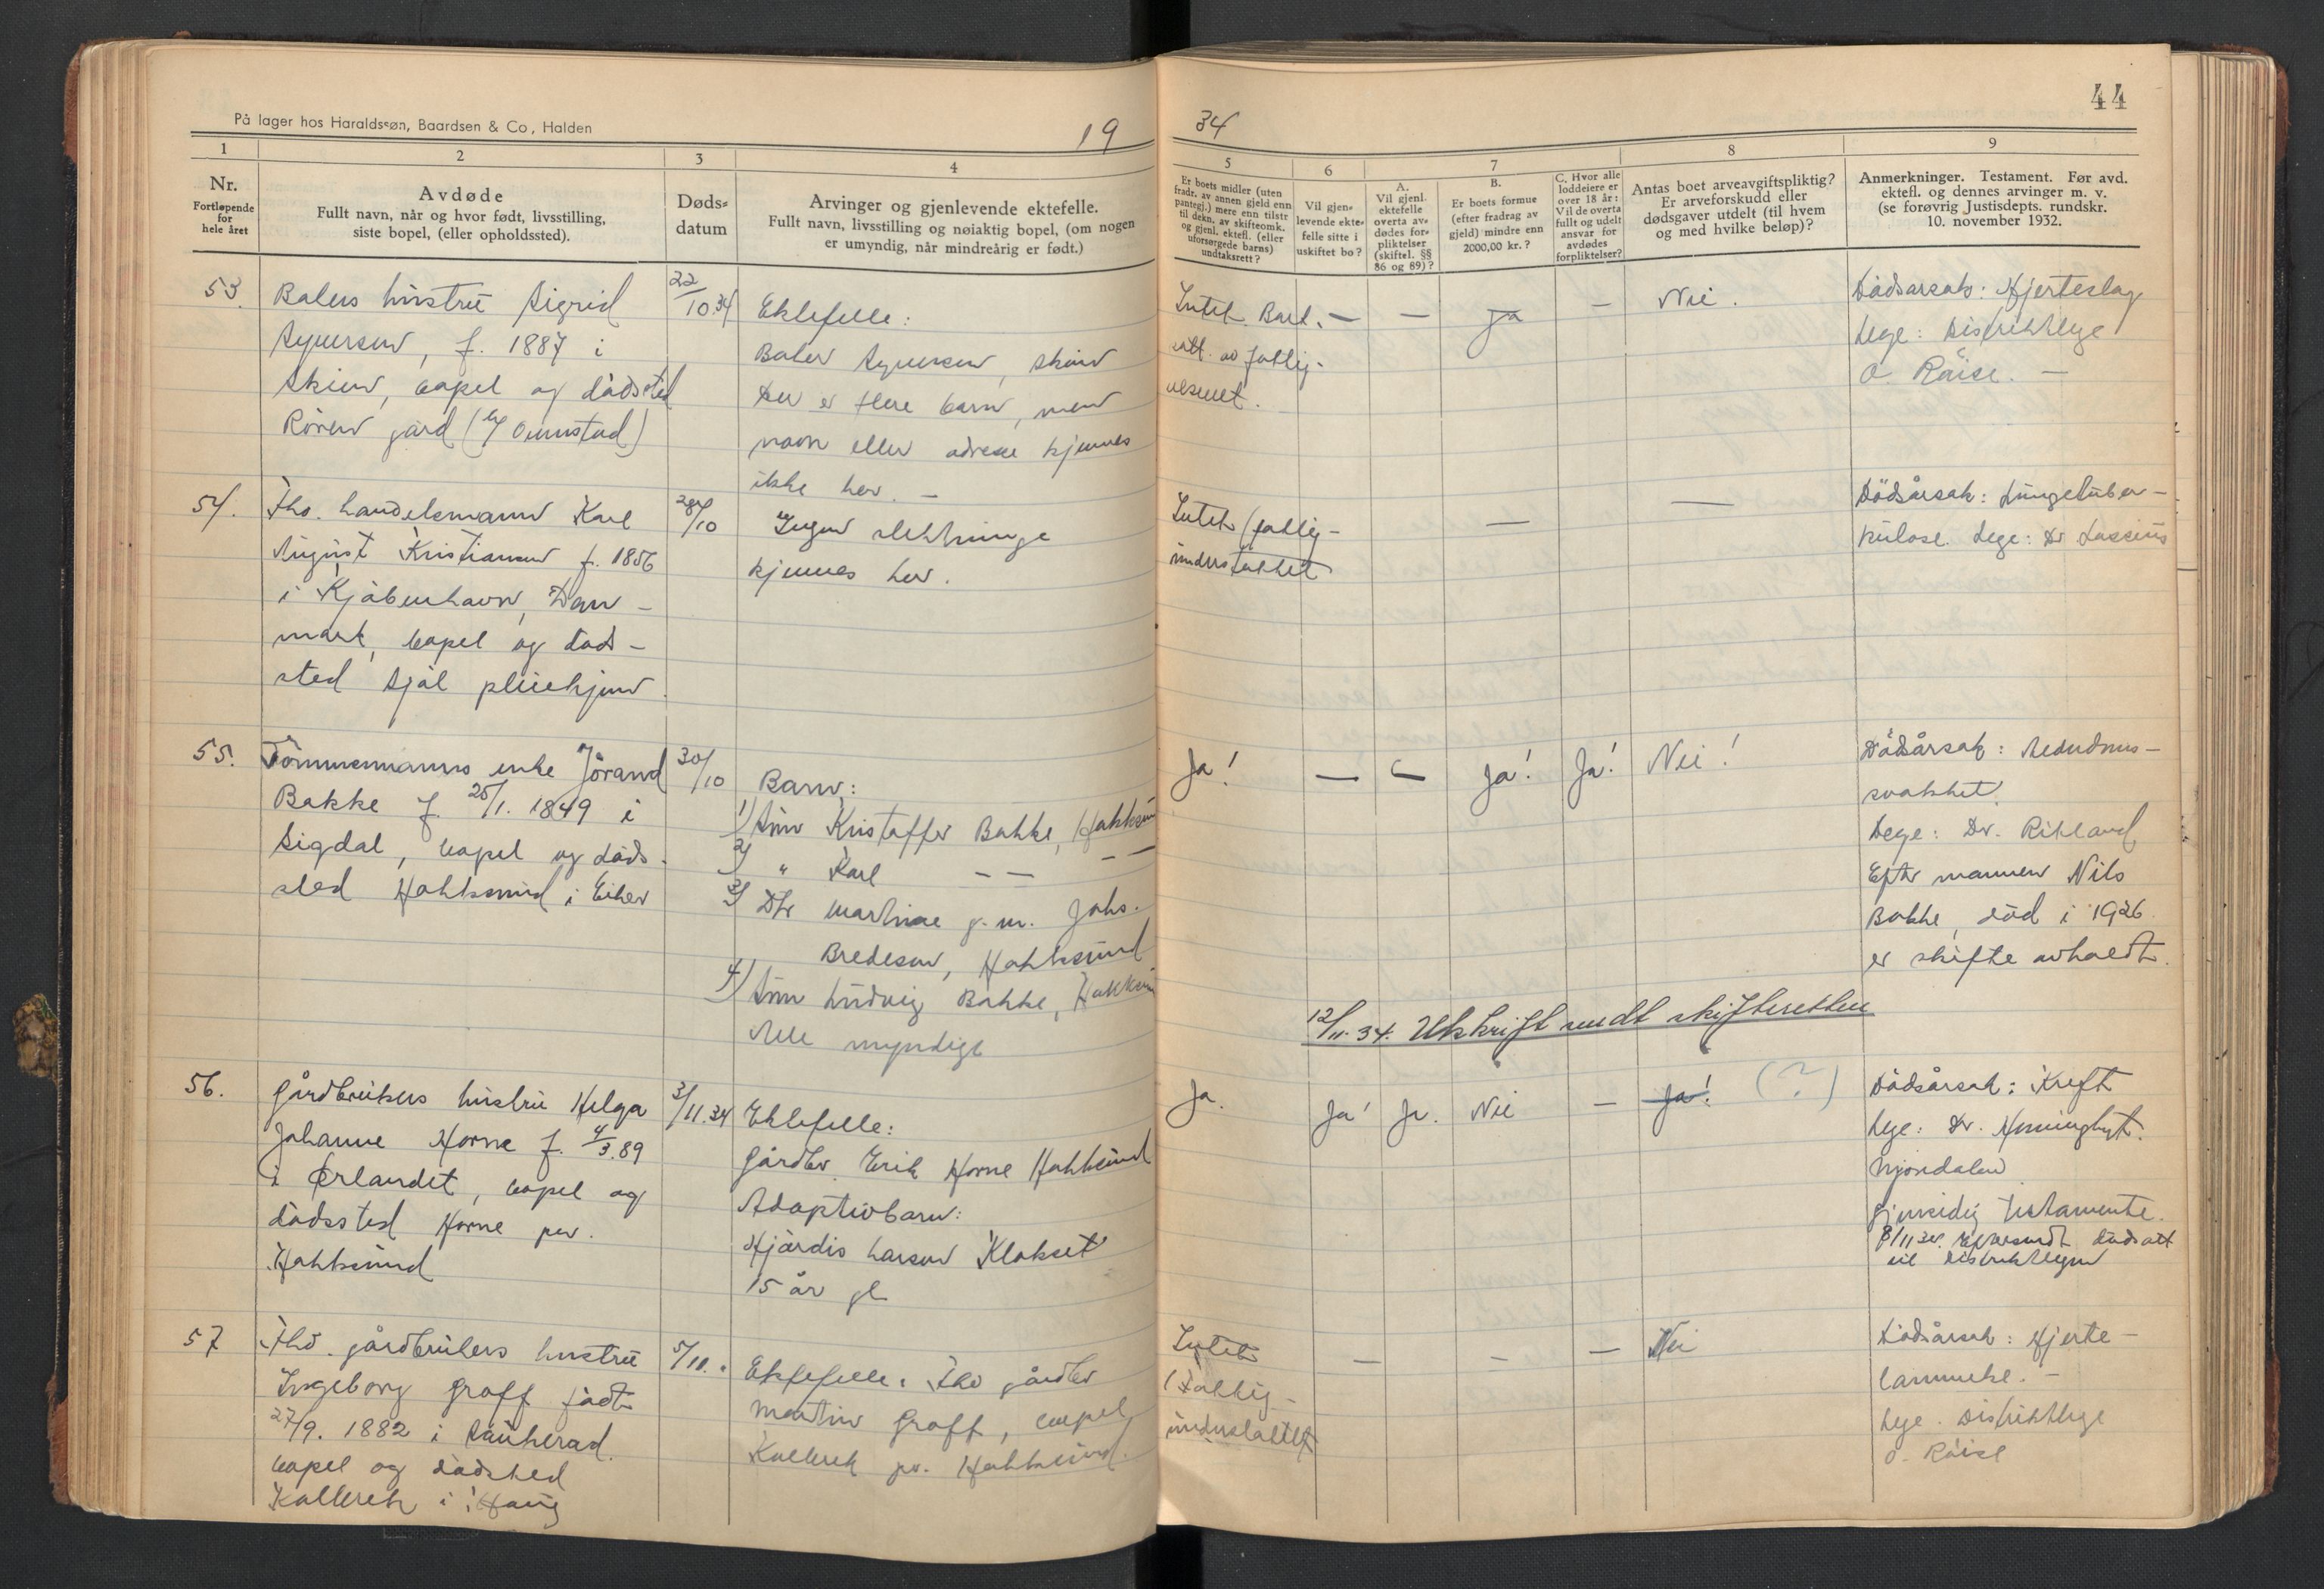 På lager hos Haraldssøn, Baardsen & Co, Halden
19
1
2
3
4
Nr.
Fortløpende
for
hele året
Avdøde
Fullt navn, når og hvor født, livsstilling,
siste bopel, (eller opholdssted).
Døds-
datum
Arvinger og gjenlevende ektefelle.
Fullt navn, livsstilling og nøiaktig bopel, (om nogen
er umyndig, når mindreårig er født.)
53.
sigrid
f. 1887 i
Skien, bopel og dødssted
Rören gård
22/10.34
Ektefelle:
Der er flere barn, men
navn eller adresse kjennes
ikke her. —
54.
Fhv. handelsmann Karl
August Kristiansen f. 1856
i Kjøbenhavn, Dan-
mark, bopel og døds-
sted
28/10
Ingen slektninge
kjennes her.
55.
Tömmermanns enke Jörand
Bakke f. 25/1. 1849 i
Sigdal, bopel og døds-
sted Hokksund i Eiker
30/10
Barn:
1) Sönn Kristoffer Bakke, Hokksund
2) " Karl — — — —
3) Dtr Martine g. m. Johs.
Bredesen, Hokksund
4) Sönn Ludvig Bakke, Hokksund
Alle myndige
56.
Gårdbrukers hustru Helga
Johanne Horne f. 4/3.89
i Ørlandet, bopel og
dødssted Horne pr.
Hokksund
3/11.34
Ektefelle:
Gårdbr. Erik Horne Hokksund
Adoptivbarn:
Hjördis Larsen Klakset
15 år gl
57
Fhv. gårdbrukers hustru
Ingeborg Graff født
27/9. 1882 i Sauherad
bopel og dødssted
i Haug
5/11.
Ektefelle: Fhv gårdbr
Martin Graff, bopel
pr. Hokksund.
34
44
5
6
7
8
9
Er boets midler (uten
fradr. av annen gjeld enn
pantegj.) mere enn tilstr
til dekn. av skifteomk.
og gjenl. ektefl. (eller
uforsørgede barns)
undtaksrett?
Vil gjen-
levende ekte-
felle sitte i
uskiftet bo?
A.
Vil gjenl.
ektefelle
overta av-
dødes for-
pliktelser
(skiftel. §§
86 og 89)?
B.
Er boets formue
(efter fradrag av
gjeld) mindre enn
2000,00 kr.?
C. Hvor alle
loddeiere er
over 18 år:
Vil de overta
fullt og udelt
ansvar for
avdødes
forpliktelser?
Antas boet arveavgiftspliktig?
Er arveforskudd eller
dødsgaver utdelt (til hvem
og med hvilke beløp)?
Anmerkninger. Testament. Før avd.
ektefl. og dennes arvinger m. v.
(se forøvrig Justisdepts. rundskr.
10. november 1932.
Intet.
av fattig-
vesenet.
—
—
ja
—
Nei.
Dødsårsak: Hjerteslag
Lege: Distriktslege
O Röise. —
Intet (fattig-
understøttet
—
—
Dödsårsak: Lungetuber-
kulose. Lege: Dr
Ja!
—
—
Ja!
Ja!
Nei!
Dödsårsak: Alderdoms-
svakhet
Lege: Dr.
Efter mannen Nils
Bakke, död i 1926
er skifte avholdt.
12/11.34. Utskrift sendt skifteretten
Ja.
Ja!
Ja.
Nei
—
Ja! (?)
Dødsårsak: Kreft
Lege: Dr.
Mjøndalen
Gjensidig testamente.
8/11 34. Eftersendt dødsatt
til distriktslegen
Intet
(Fattig-
understøttet
—
—
—
Nei
Dödsårsak: Hjerte-
lammelse. —
Lege. Distriktslege
O. Röise